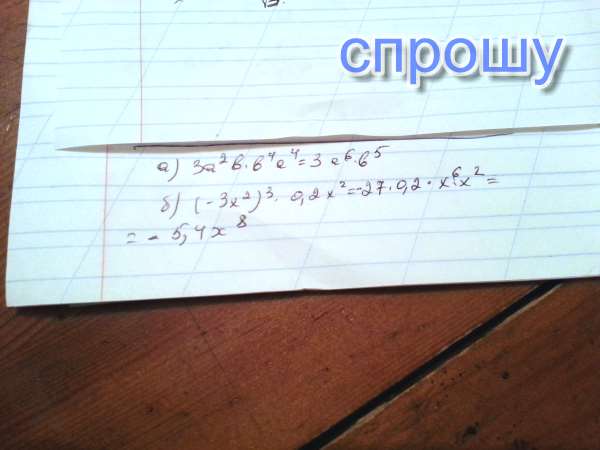 спрошу
а) 3a²b·b⁴a⁴=3a⁶·b⁵
б) (-3x²)³·0,2x²=-27·0,2·x⁶·x²=
=-5,4x⁸